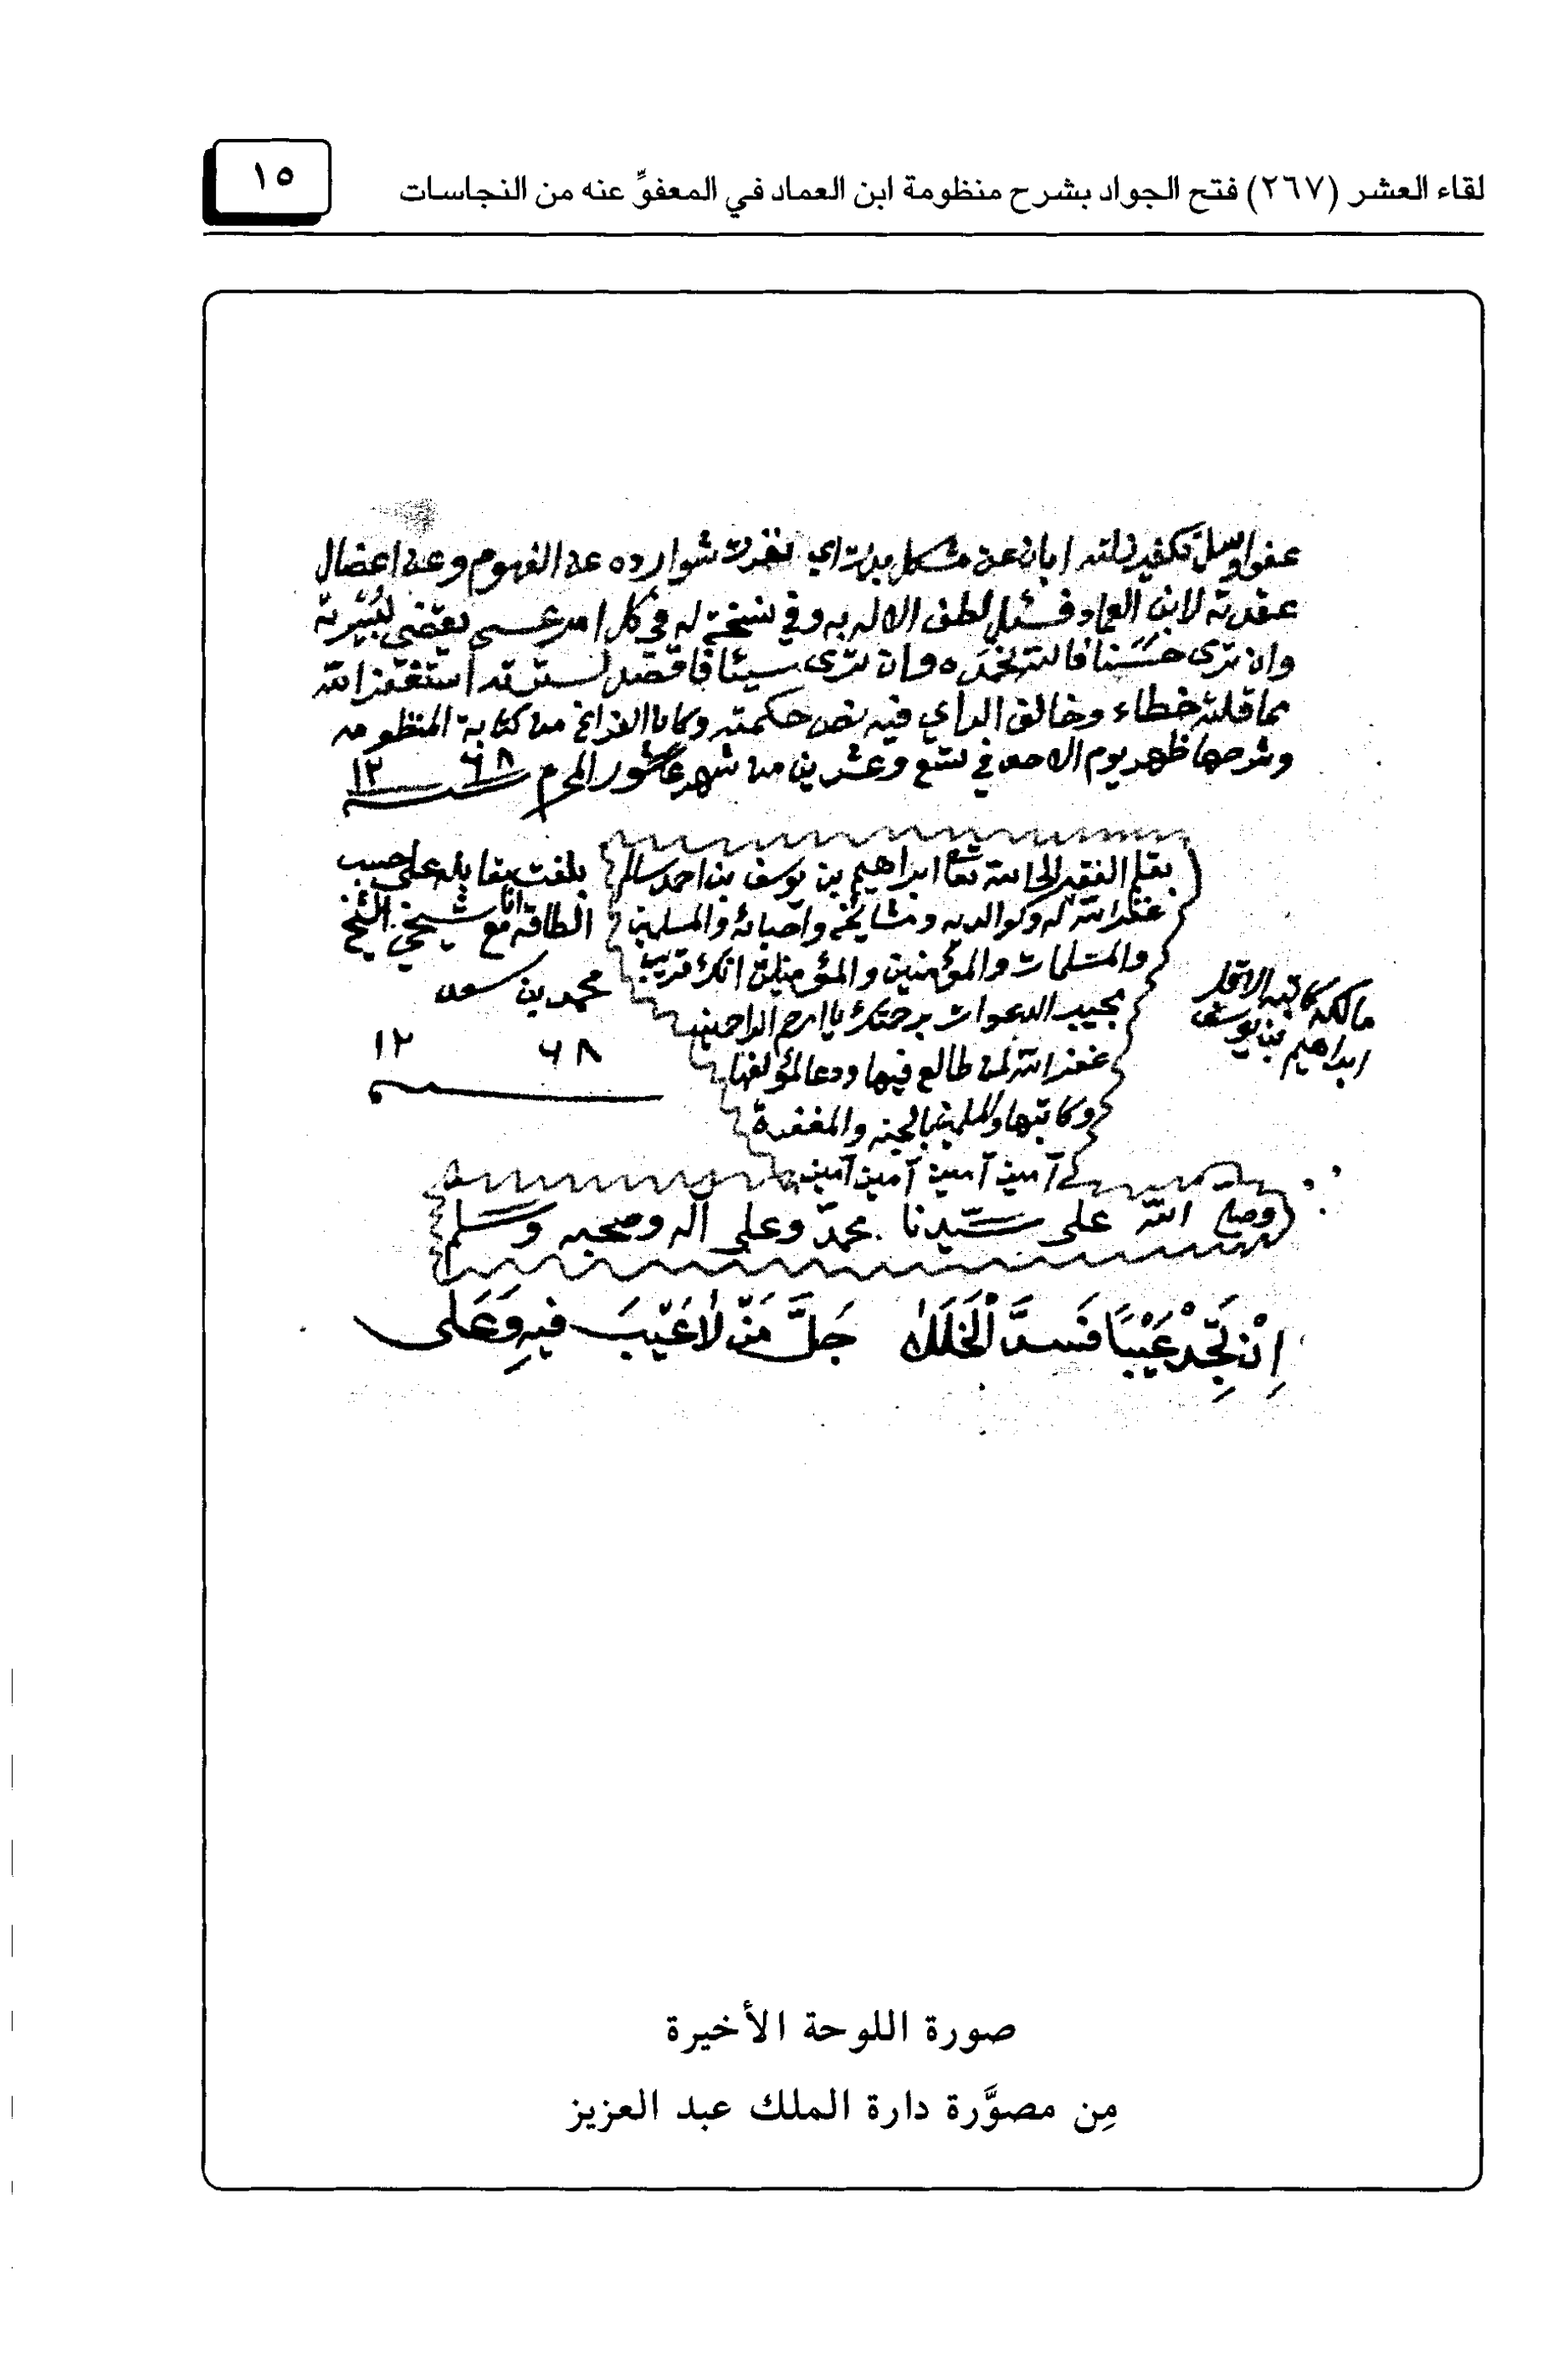 لقاء العشر (٢٦٧) فتح الجواد بشرح منظومة ابن العماد في المعفوِّ عنه من النجاسات
١٥
عفوا وسل تكفير زلته ابان عن مشكل بدت اي نفرت شوارده عن الفهوم وعن اعضال
عقدته لابن العماد فسل لطف الاله به وفي نسخة له في كل امر عسى يقضي ليسرته
وان ترى حسنا فالله نحمده وان ترى سيئا فاقصد لسترته استغفر الله
مما قلته خطاء وخالف الراي فيه نص حكمته وكان الفراغ من كتابة المنظومه
وشرحها ظهر يوم الاحد في تسع وعشرين من شهر عاشور المحرم سنة ١٢٦٨
بقلم الفقير الى الله تعا ابراهيم بن يوسف بن احمد سالم
غفر الله له ولوالديه ومشايخه واحبائه والمسلمين
والمسلمات والمؤمنين والمؤمنات انك قريب
مجيب الدعوات برحمتك ياارحم الراحمين
غفر الله لمن طالع فيها ودعا لمؤلفها
وكاتبها وللمسلمين بالجنه والمغفرة
آمين آمين آمين آمين
بلغت مقابله على حسب
الطاقه مع شيخي الشيخ
محمد بن سعد
١٢٦٨
مالكه كاتبه الاقل
ابراهيم بن يوسف
وصلى الله على سيدنا محمد وعلى آله وصحبه وسلم
اِنْ تَجِدْ عَيْبًا فَسدَّ الْخَلَلَا جَلَّ مَنْ لَا عَيْبَ فيهِ وَعَلَى
صورة اللوحة الأخيرة
مِن مصوَّرة دارة الملك عبد العزيز